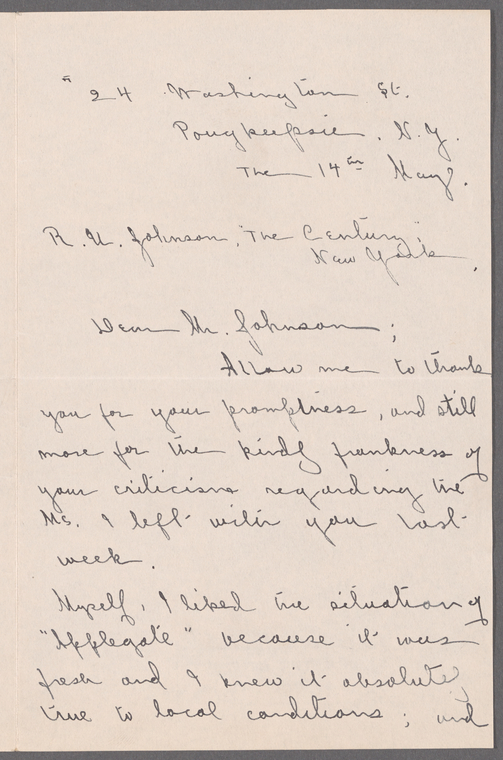 24 Washington St.
Pougkeepsie. N.Y.
The 14th May.
R. U. Johnson, "The Century",
New York.
Dear Mr. Johnson;
Allow me to thank
you for your promptness, and still
more for the kindly frankness of
your criticisms regarding the
Ms. I left with you last
week.
Myself, I liked the situation of
"Applegate" because it was
fresh and I knew it absolutely
true to local conditions; and